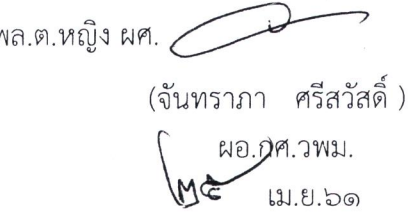 พล.ต.หญิง ผศ.
(จันทราภา ศรีสวัสดิ์ )
ผอ.กศ.วพม.
๒๕ เม.ย.๖๑